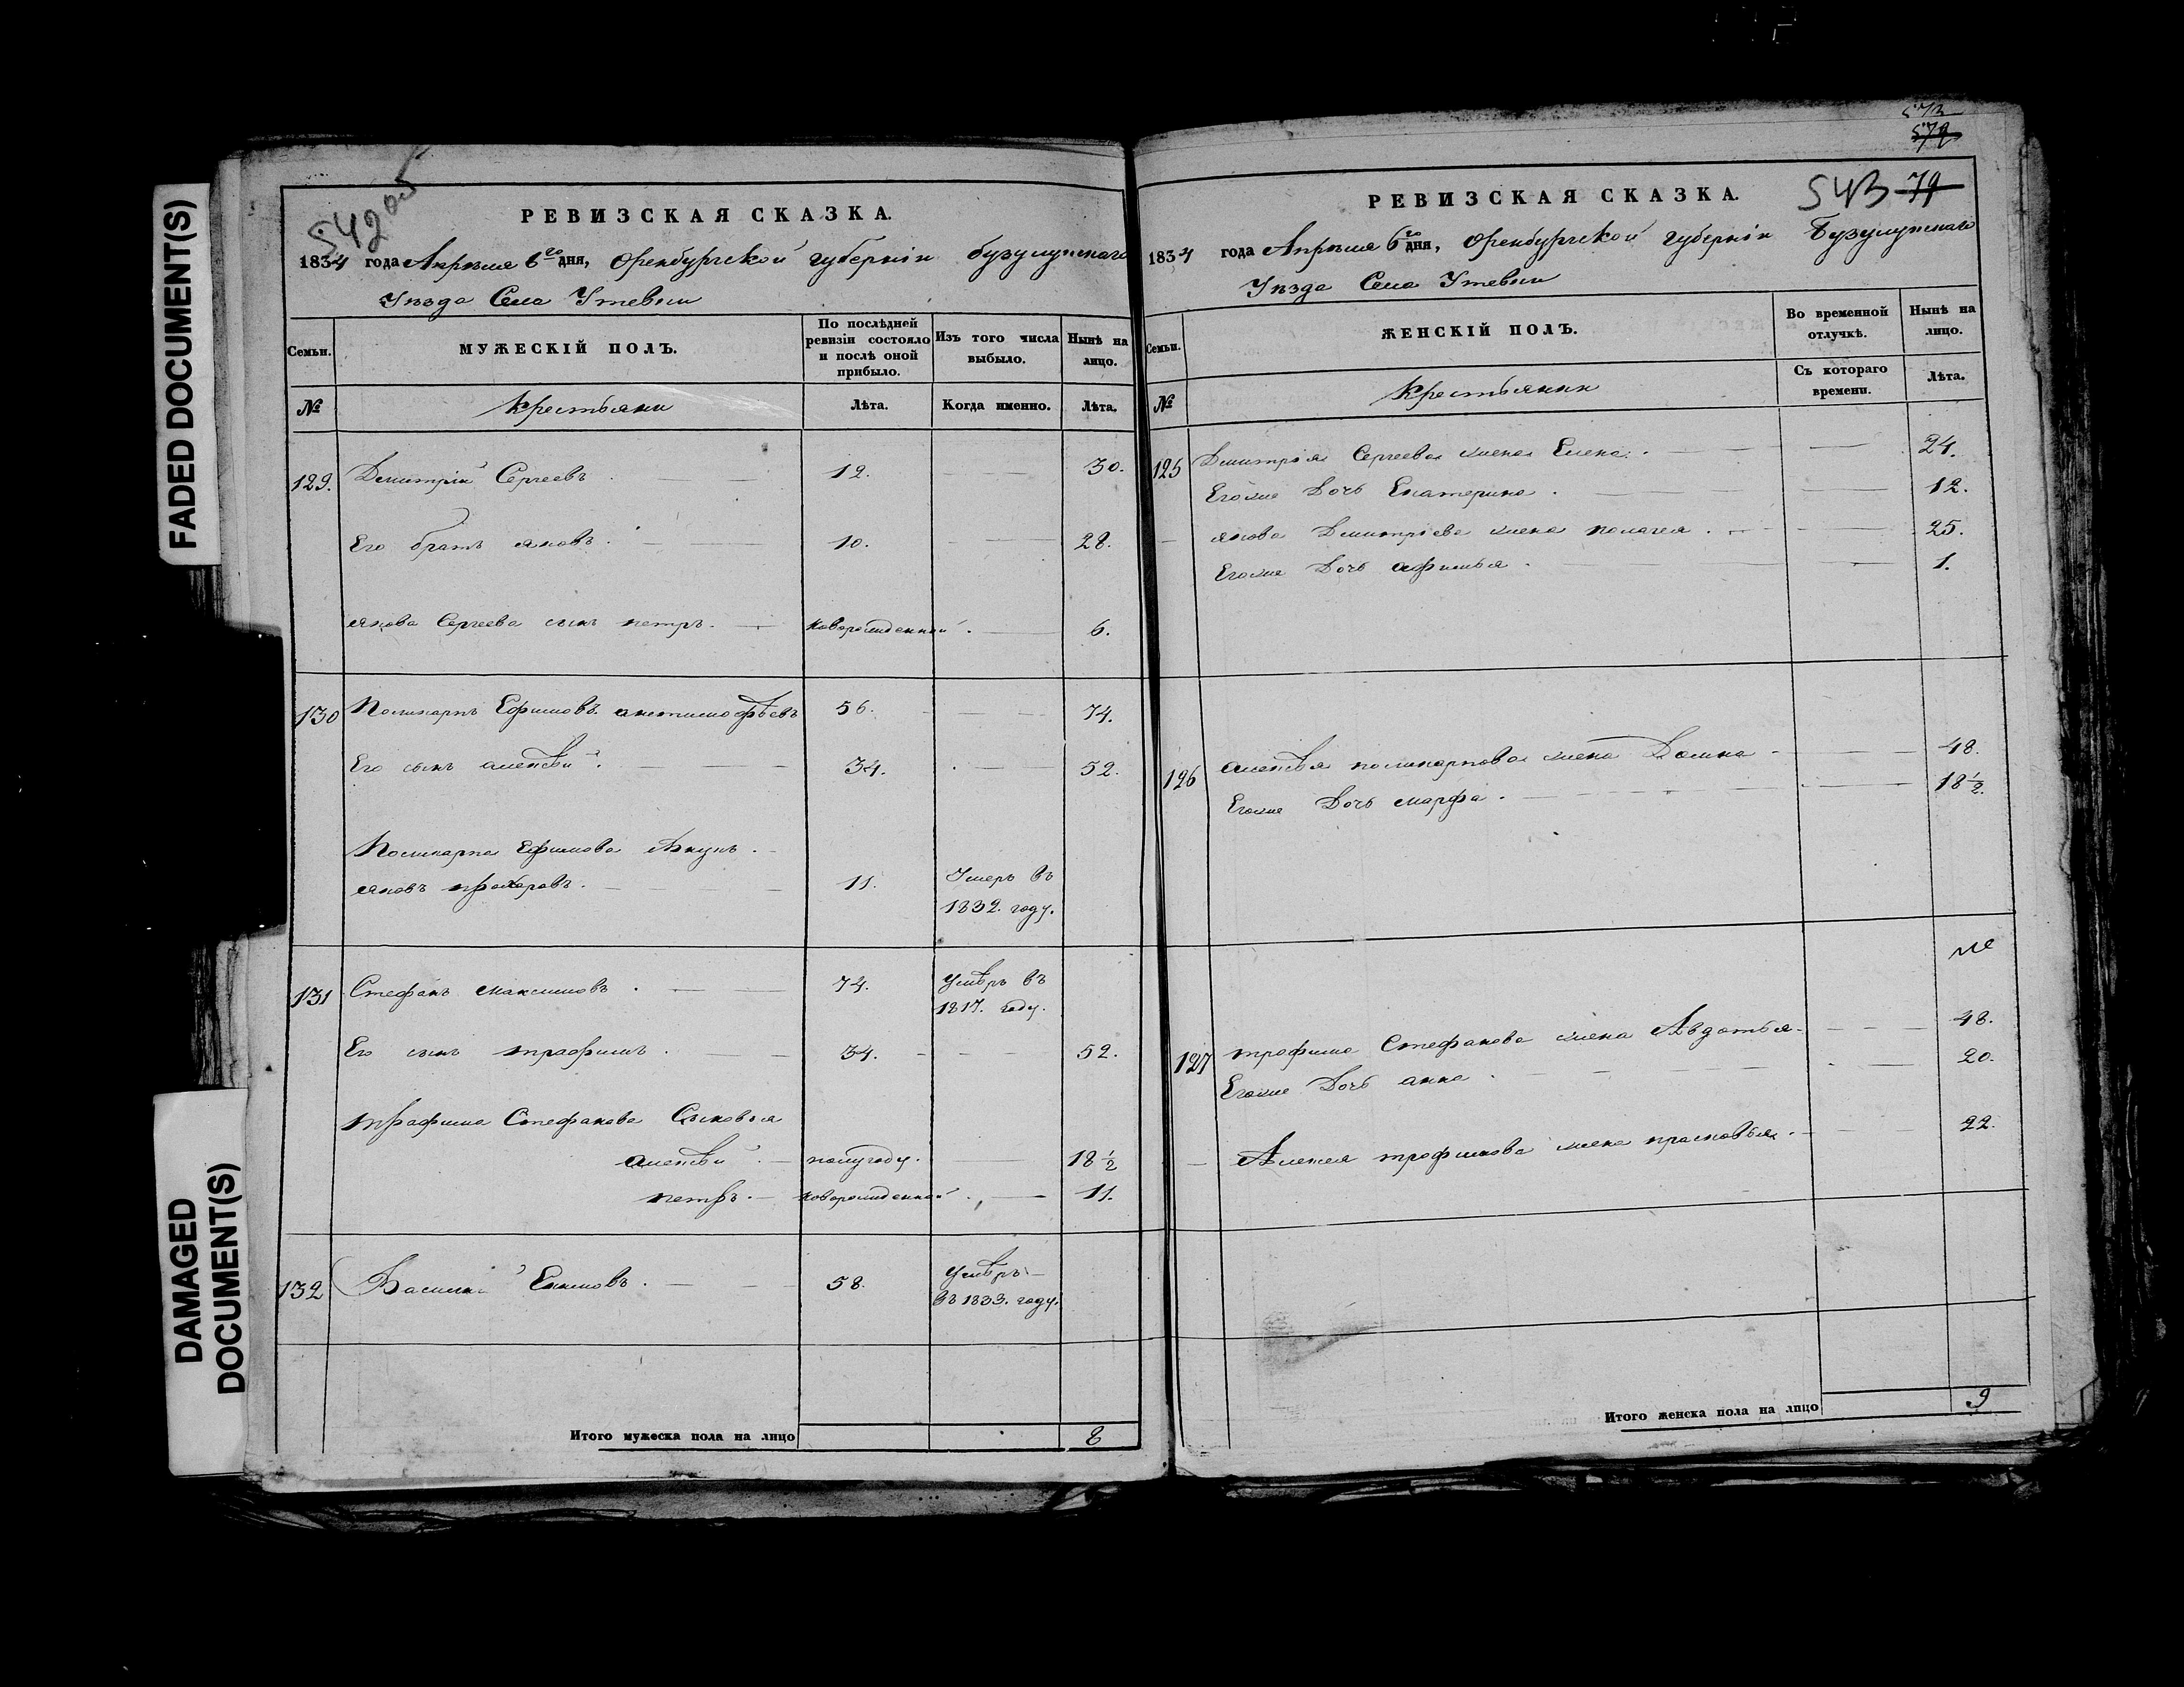 FADED DOCUMENT(S)
DAMAGED
DOCUMENT(S)
542 об
РЕВИЗСКАЯ СКАЗКА.
1834 года Апреля 6го дня, Оренбургской губерніи бузулукскаго
Уезда Села Утевки
Семьи.
МУЖЕСКІЙ ПОЛЪ.
По послѣдней ревизіи состояло и послѣ оной прибыло.
Изъ того числа выбыло.
Нынѣ на лицо.
№
Крестьяни
Лѣта.
Когда именно.
Лѣта.
129. Дмитрій Сергеевъ. 12. 30.
Его братъ яковъ. 10. 28.
якова Сергеева сынъ петръ. новорожденной. 6.
130 Поликарпъ Ефимовъ 56. 74.
Его сынъ алексѣй. 34. 52.
Поликарпа Ефимова внукъ.
яковъ прохоровъ. 11. Умеръ въ
1832. году.
131 Стефанъ максимовъ. 74. умѣръ въ
1817. году.
Его сынъ трафимъ. 34. 52.
трафима Стефанова Сыновья
алексѣй. полугоду. 18 1/2
петръ. новорожденной. 11.
132 Василій Екимовъ. 58. умѣръ
въ 1833. году.
Итого мужеска пола на лицо 8
573
572
543 79
РЕВИЗСКАЯ СКАЗКА.
1834 года Апреля 6го дня, Оренбургской губерніи Бузулукскаго
Уезда Села Утевки
Семьи.
ЖЕНСКІЙ ПОЛЪ.
Во временной отлучкѣ.
Нынѣ на лицо.
№
Крестьянки
Съ котораго времени.
Лѣта.
125 Дмитрія Сергеева жена Елена. 24.
Егоже Дочь Екатерина. 12.
якова Дмитріева жена пелагея. 25.
Егоже Дочь афимья. 1.
126 алексѣя поликарпова жена Домна 48.
Егоже Дочь марфа. 18 1/2.
127 трофима Стефанова жена Авдотья 48.
Егоже Дочь анна 20.
Алексея трофимова жена прасковья. 22.
Итого женска пола на лицо 9